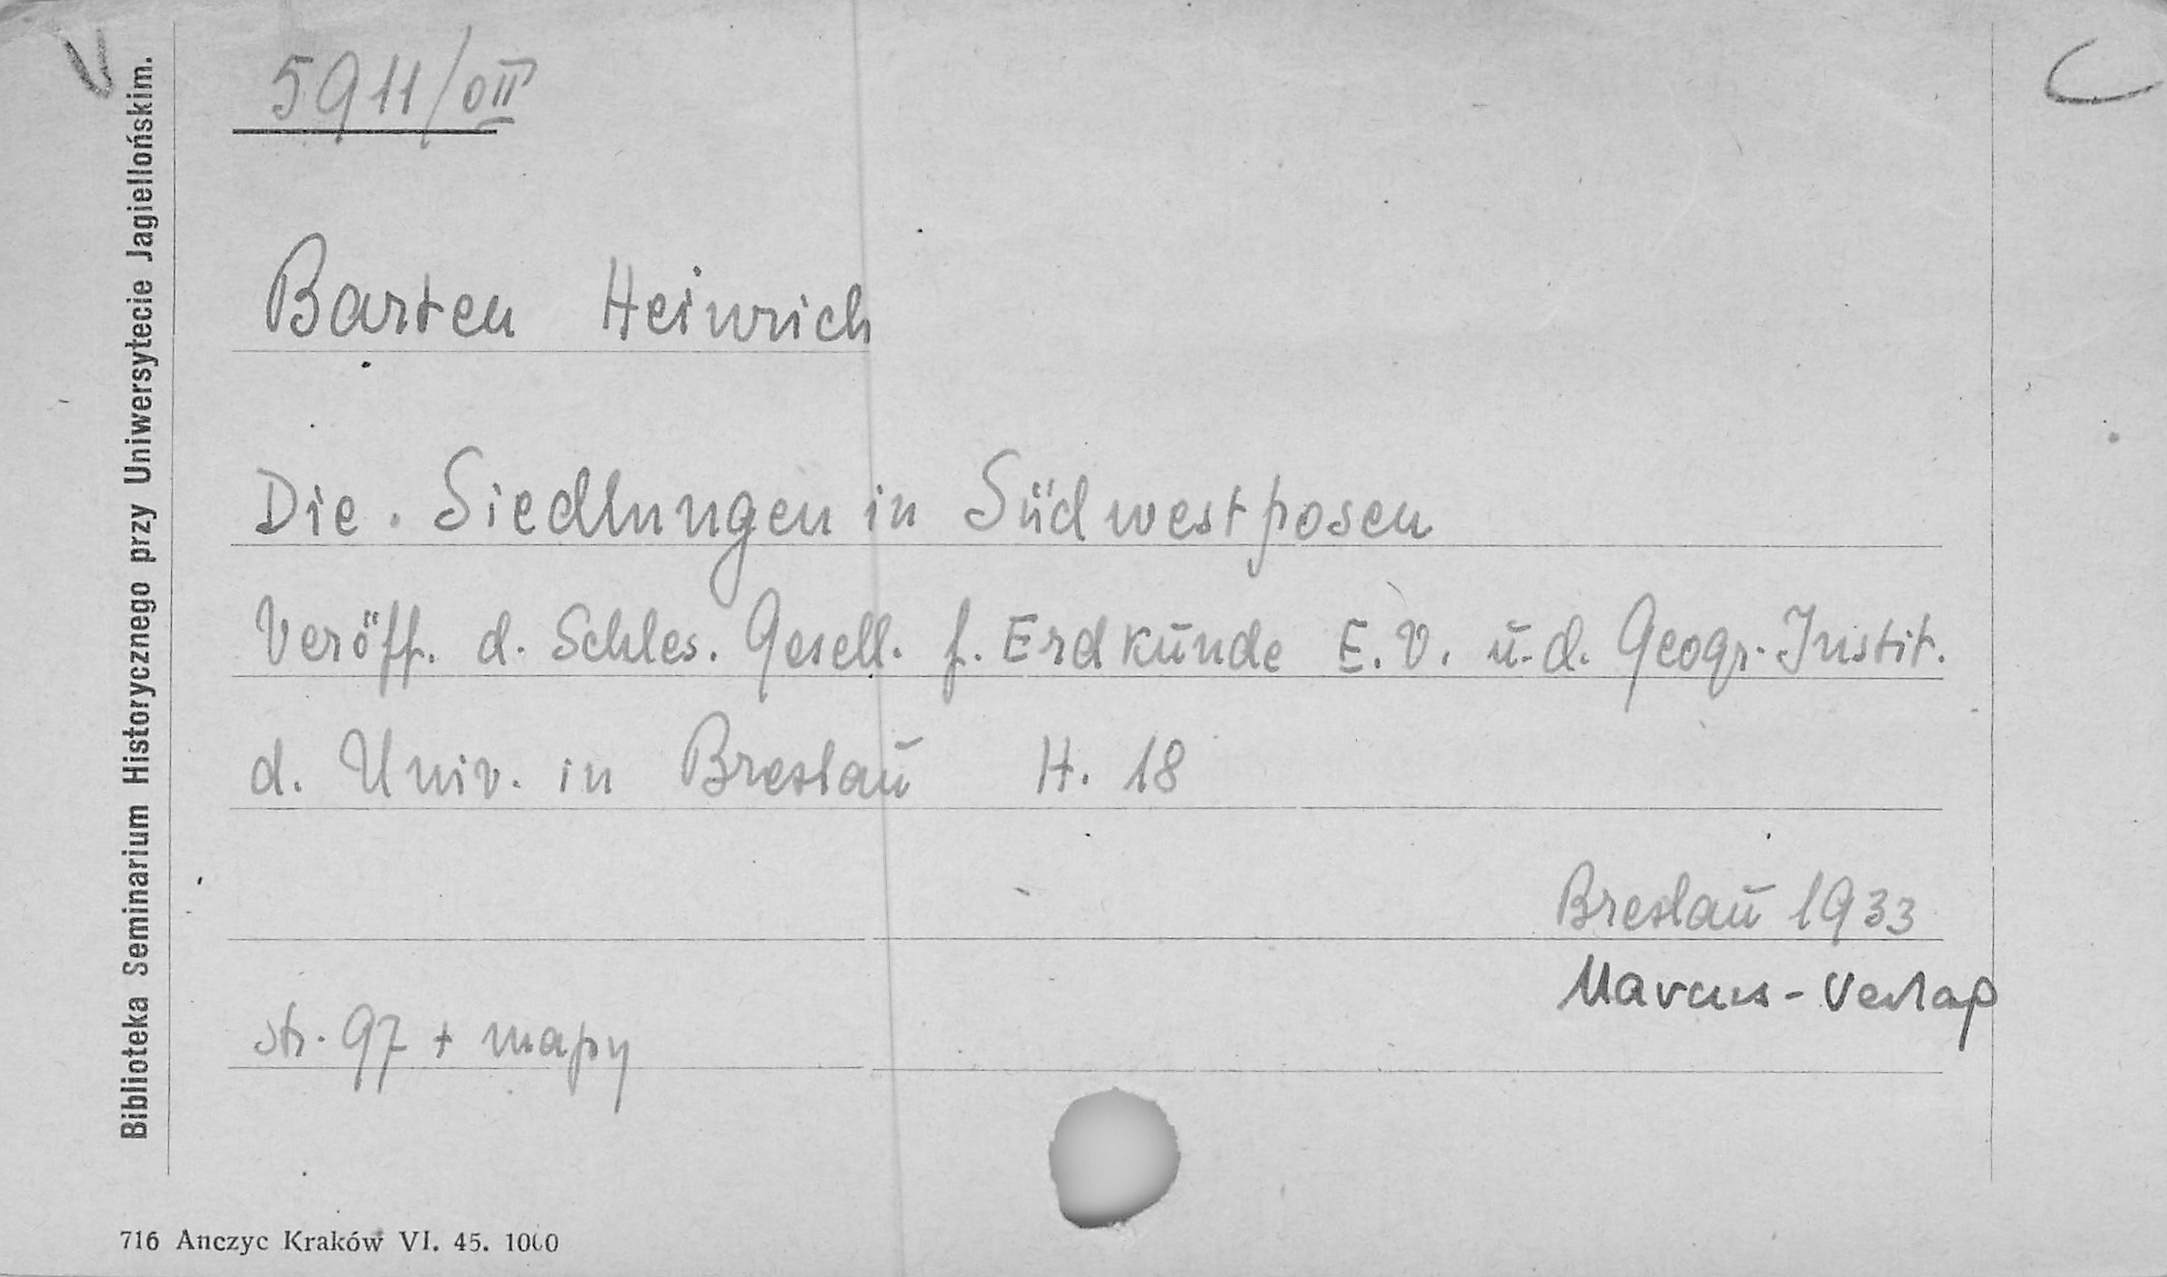 5911/OII
Barten Heinrich
Die. Siedlungen in Südwestposen
Veröff. d. Schles. Gesell. f. Erdkunde E.V. u. d. Geogr. Instit.
d. Univ. in Breslau H. 18
Breslau 1933
Marcus-Verlag
str. 97 + mapy
Biblioteka Seminarium Historycznego przy Uniwersytecie Jagiellońskim.
716 Anczyc Kraków VI. 45. 1000